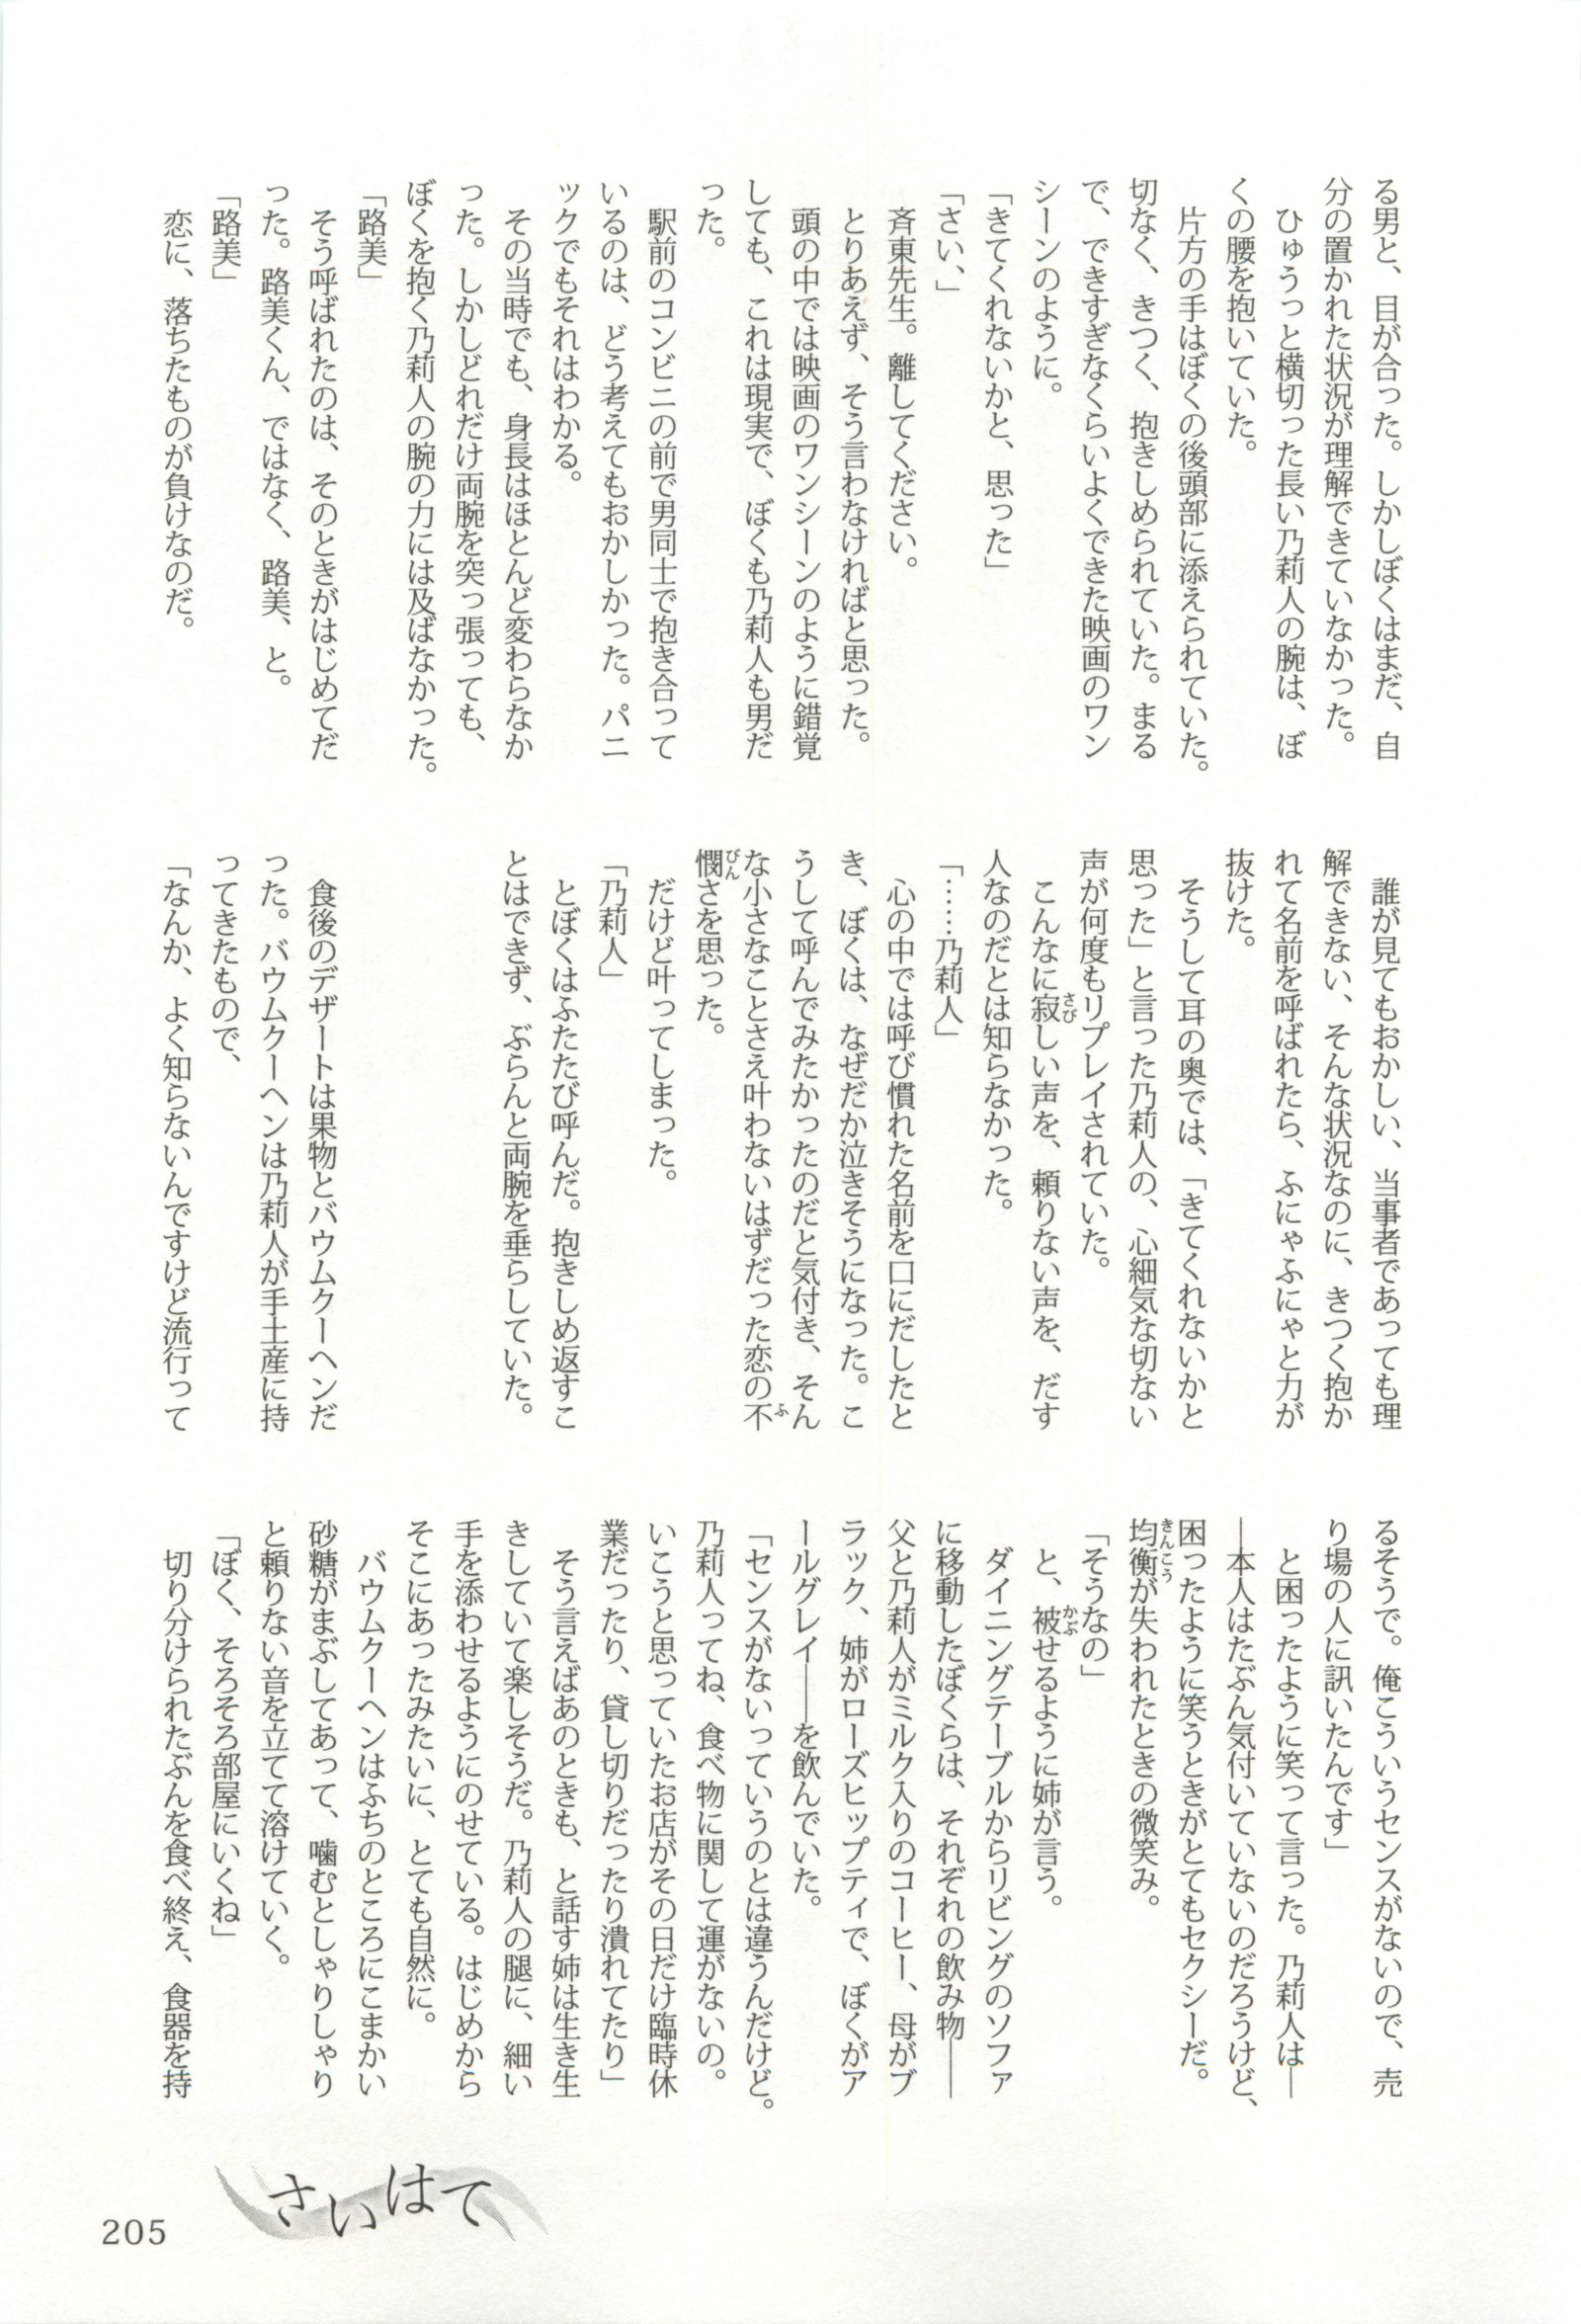 る男と、目が合った。しかしぼくはまだ、自
分の置かれた状況が理解できていなかった。
ひゅうっと横切った長い乃莉人の腕は、ぼ
くの腰を抱いていた。
片方の手はぼくの後頭部に添えられていた。
切なく、きつく、抱きしめられていた。まる
で、できすぎなくらいよくできた映画のワン
シーンのように。
「きてくれないかと、思った」
「さい、」
斉東先生。離してください。
とりあえず、そう言わなければと思った。
頭の中では映画のワンシーンのように錯覚
しても、これは現実で、ぼくも乃莉人も男だ
った。
駅前のコンビニの前で男同士で抱き合って
いるのは、どう考えてもおかしかった。パニ
ックでもそれはわかる。
その当時でも、身長はほとんど変わらなか
った。しかしどれだけ両腕を突っ張っても、
ぼくを抱く乃莉人の腕の力には及ばなかった。
「路美」
そう呼ばれたのは、そのときがはじめてだ
った。路美くん、ではなく、路美、と。
「路美」
恋に、落ちたものが負けなのだ。
誰が見てもおかしい、当事者であっても理
解できない、そんな状況なのに、きつく抱か
れて名前を呼ばれたら、ふにゃふにゃと力が
抜けた。
そうして耳の奥では、「きてくれないかと
思った」と言った乃莉人の、心細気な切ない
声が何度もリプレイされていた。
こんなに寂しい声を、頼りない声を、だす
人なのだとは知らなかった。
「……乃莉人」
心の中では呼び慣れた名前を口にだしたと
き、ぼくは、なぜだか泣きそうになった。こ
うして呼んでみたかったのだと気付き、そん
な小さなことさえ叶わないはずだった恋の不
憫さを思った。
だけど叶ってしまった。
「乃莉人」
とぼくはふたたび呼んだ。抱きしめ返すこ
とはできず、ぶらんと両腕を垂らしていた。
食後のデザートは果物とバウムクーヘンだ
った。バウムクーヘンは乃莉人が手土産に持
ってきたもので、
「なんか、よく知らないんですけど流行って
るそうで。俺こういうセンスがないので、売
り場の人に訊いたんです」
と困ったように笑って言った。乃莉人は―
―本人はたぶん気付いていないのだろうけど、
困ったように笑うときがとてもセクシーだ。
均衡が失われたときの微笑み。
「そうなの」
と、被せるように姉が言う。
ダイニングテーブルからリビングのソファ
に移動したぼくらは、それぞれの飲み物――
父と乃莉人がミルク入りのコーヒー、母がブ
ラック、姉がローズヒップティで、ぼくがア
ールグレイ――を飲んでいた。
「センスがないっていうのとは違うんだけど。
乃莉人ってね、食べ物に関して運がないの。
いこうと思っていたお店がその日だけ臨時休
業だったり、貸し切りだったり潰れてたり」
そう言えばあのときも、と話す姉は生き生
きしていて楽しそうだ。乃莉人の腿に、細い
手を添わせるようにのせている。はじめから
そこにあったみたいに、とても自然に。
バウムクーヘンはふちのところにこまかい
砂糖がまぶしてあって、噛むとしゃりしゃり
と頼りない音を立てて溶けていく。
「ぼく、そろそろ部屋にいくね」
切り分けられたぶんを食べ終え、食器を持
さいはて
205